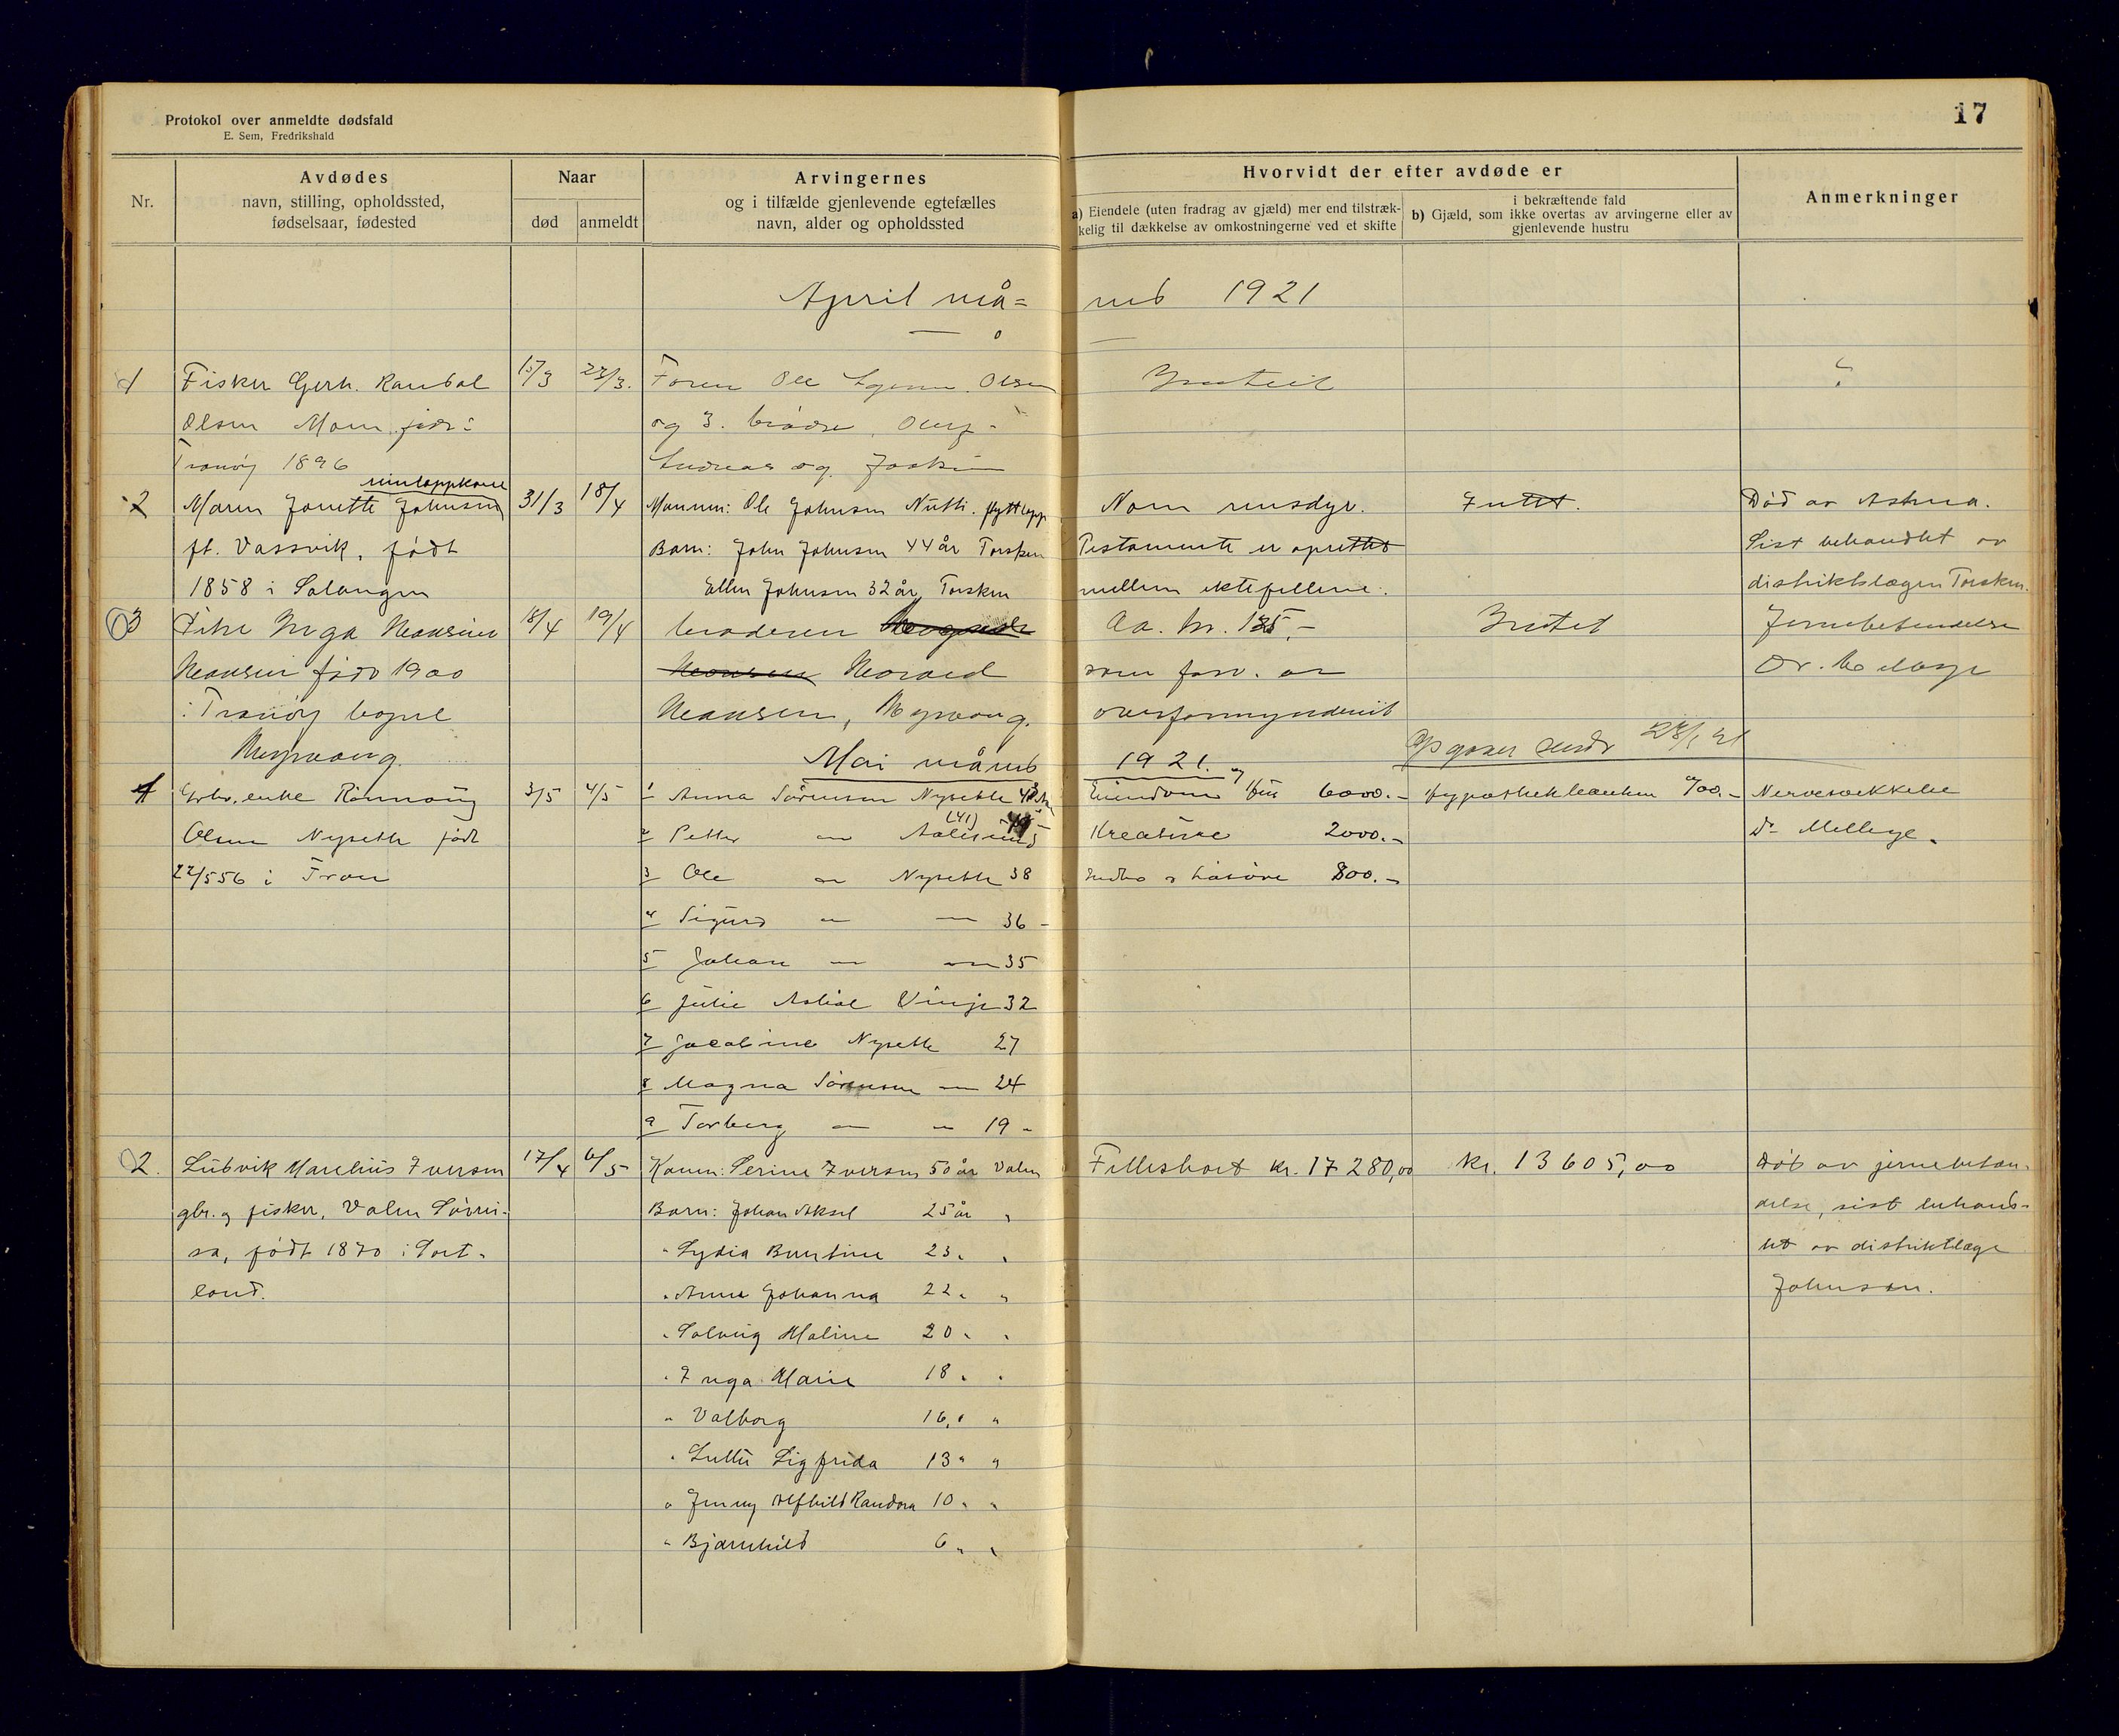 Protokol over anmeldte dødsfald
E. Sem, Fredrikshald
17
Nr.
Avdødes
navn, stilling, opholdssted,
fødselsaar, fødested
Naar
død
anmeldt
Arvingernes
og i tilfælde gjenlevende egtefælles
navn, alder og opholdssted
Hvorvidt der efter avdøde er
a) Eiendele (uten fradrag av gjæld) mer end tilstræk-
kelig til dækkelse av omkostningerne ved et skifte
i bekræftende fald
b) Gjæld, som ikke overtas av arvingerne eller av
gjenlevende hustru
Anmerkninger
April må= ned 1921
1 Fisker Gerh. Olsen
15/3 23/3.
Faren Ole Olsen
Intet
?
Olsen født i
og 3. brødre
Tranøy 1896
Andreas og Joakim
2 Maren Jonette Johnsen
31/3 18/4
Mannen: Ole Johnsen Nutti. flyttlapp
Noen rensdyr.
Intet.
Død av Astma.
ft. Vassvik, født
Barn: John Johnsen 44 år Torsken
Testamente er oprettet
Sist behandlet av
1858 i Salangen
Ellen Johnsen 32 år, Torsken
mellem ektefellene.
distriktslægen Torsken.
3 Pike Inga Hansine
18/4 19/4
broderen
Ca. kr. 135,-
Intet
Hansen født 1900
Hansen Harald
som forv. av
Dr. Mellbye
i Tranøy
Hansen,
overformynderiet
Mai måned 1921.
1 Grbr. enke Rønnaug
3/5 4/5
1 Anna Sørensen Nyseth
Eiendom og hus 6000.-
hypothekbanken 700.-
Nervesvekkelse
Olsen Nyseth født
2 Petter — Aalesund (41)
Kreaturer 2000.-
Dr Mellbye.
22/5 56 i Tran
3 Ole — Nyseth 38
Indbo og løsøre 800.-
4 Sigurd — — 36 -
5 Johan — — 35
6 Julie Vinje 32
7 Jacobine Nyseth 27
8 Magna Sørensen — 24
9 Torberg — — 19 -
2. Ludvik Marelius Iversen
17/4 6/5
Konen: Serine Iversen 50 år Valen
Fellesboet kr. 17 280,00
kr. 13 605,00
Død av jernebetæn-
gbr. og fisker, Valen Sørrei-
Barn: Johan Aksel 25 år "
delse, sist behand-
sa, født 1870 i Sort-
" Lydia Berntine 23 " "
let av distriktlæge
land.
" Anne Johanna 22 " "
Johnson.
" Solveig Maline 20 " "
" Inga Marie 18 " "
" Valborg 16 " "
" Lulli Sigfrida 13 " "
" Jenny Alfhild Randora 10 " "
" Bjarnhild 6 " "